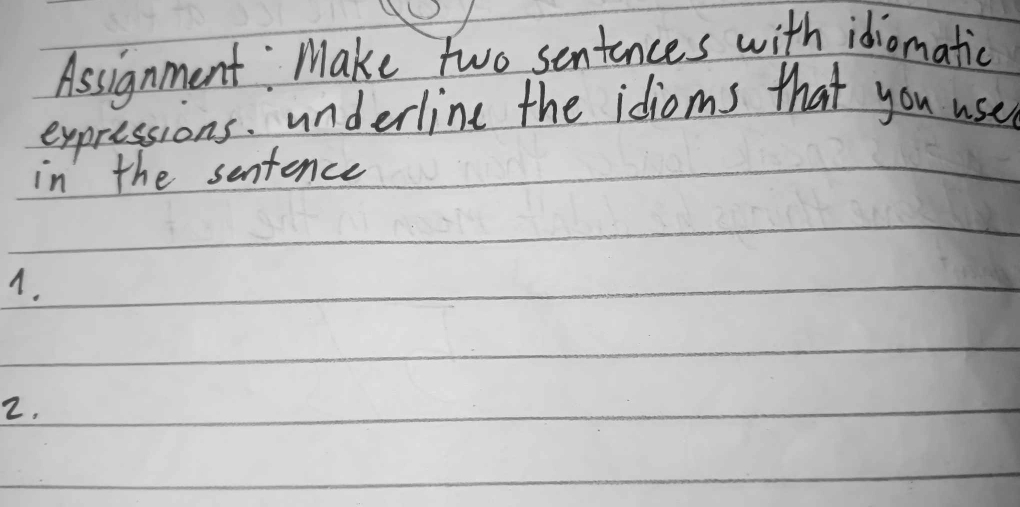 Assignment: Make two sentences with idiomatic
expressions. underline the idioms that you used
in the sentence
1.
2.